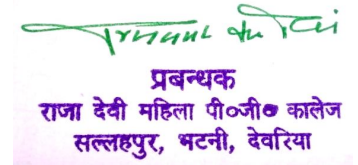 प्रबन्धक
राजा देवी महिला पी०जी० कालेज
सल्लहपुर, भटनी, देवरिया